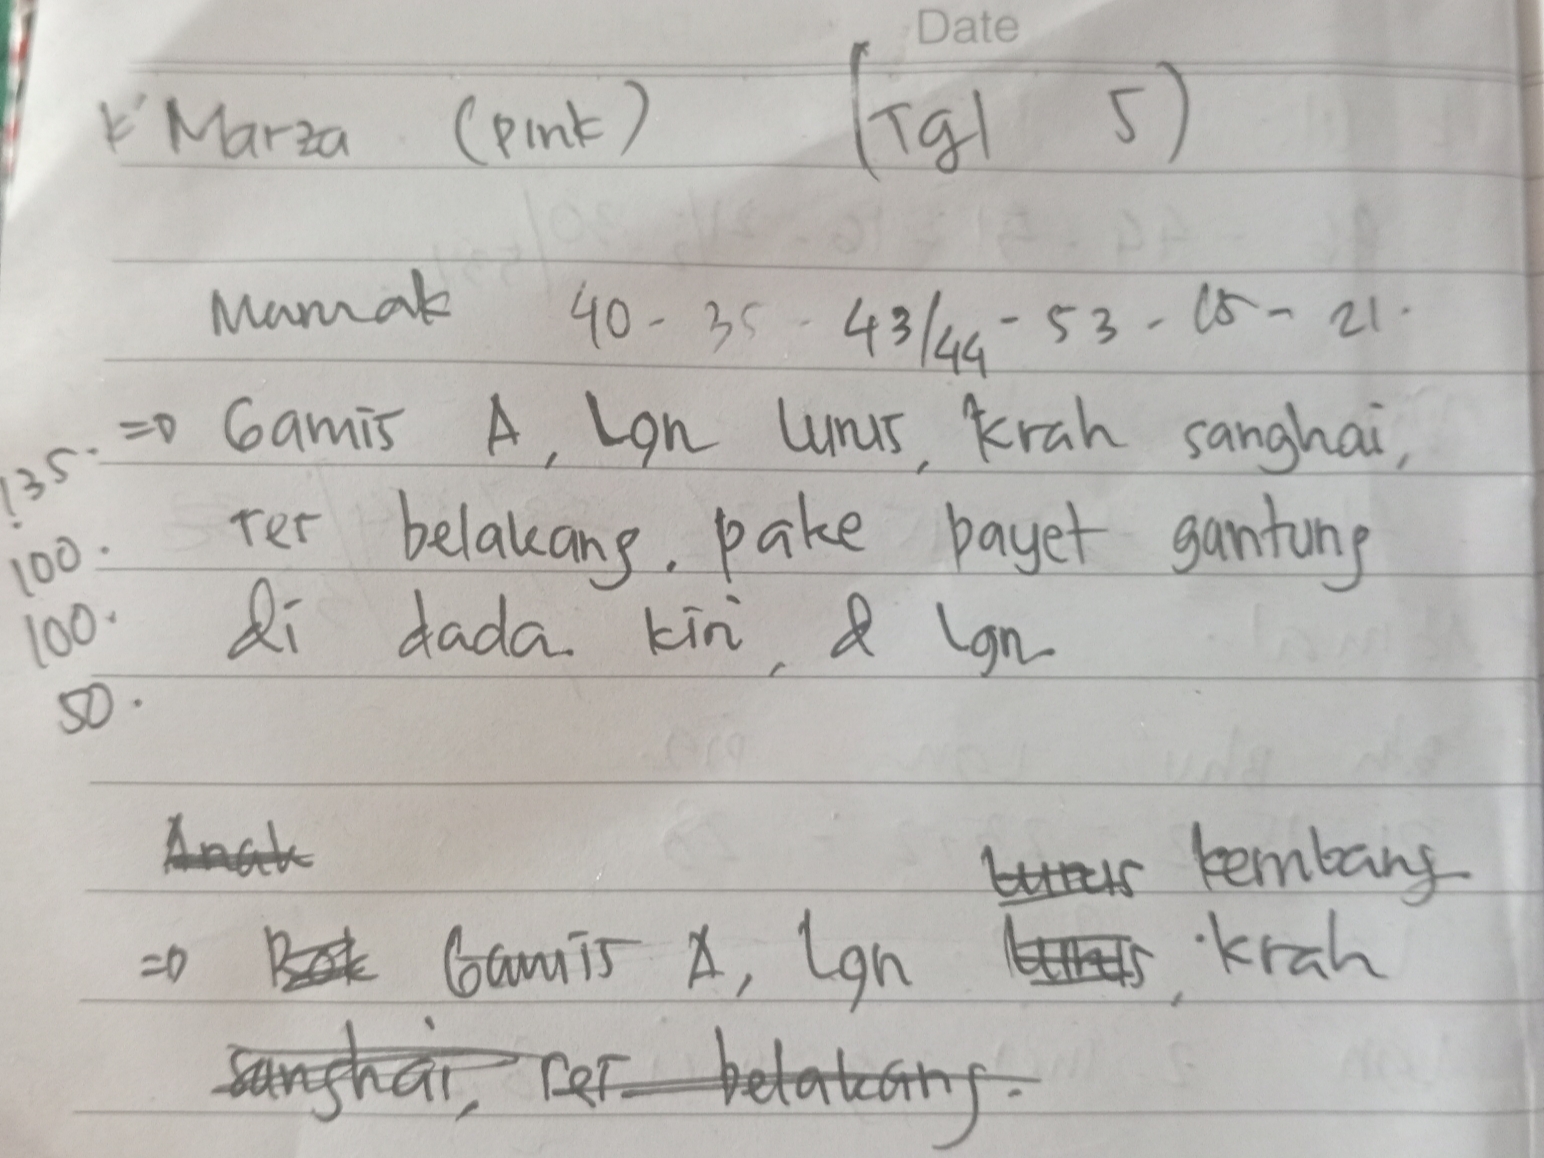 Date
K'Marza (pink) (Tgl 5)
Mamak 40 - 35 - 43/44 - 53 - 15 - 21.
135. => Gamis A, Lgn lurus, krah sanghai,
100. rer belakang. pake payet gantung
100. di dada kiri, & lgn
50.
Anak
lurus kembang
=> Gamis A, lgn lurus, krah
sanghai, rer belakang.